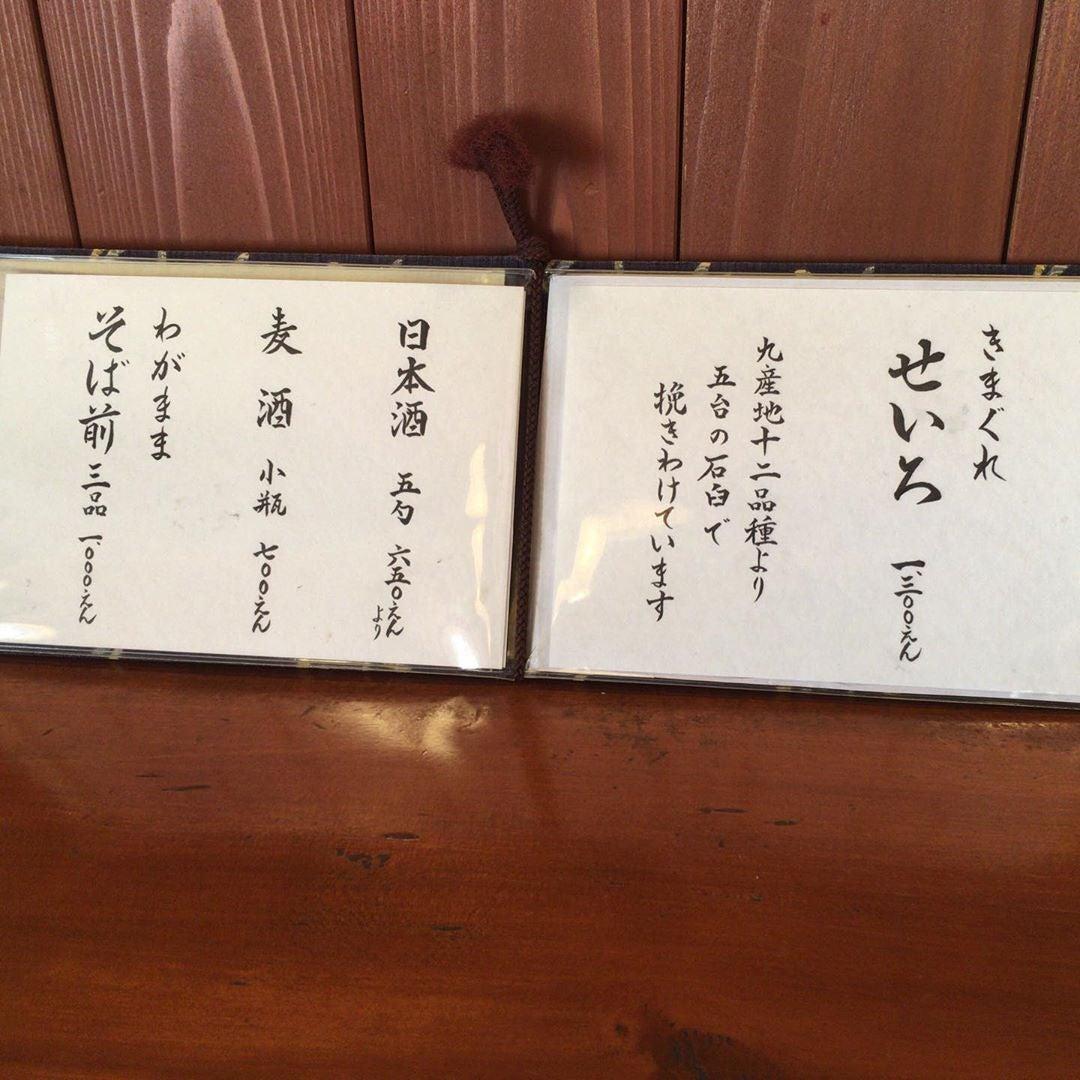 きまぐれ
せいろ 一、三〇〇えん
九産地十二品種より
五台の石臼で
挽きわけています
日本酒 五勺 六五〇えんより
麦酒 小瓶 七〇〇えん
わがまま
そば前 三品 一、〇〇〇えん